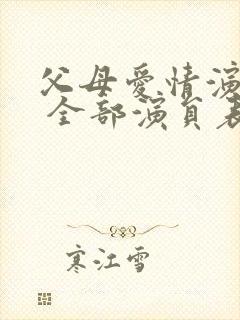 父母爱情演
全部演员表
寒江雪